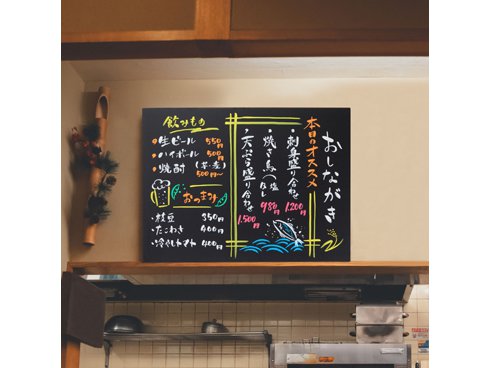 おしながき
本日のオススメ
・刺身盛り合わせ
1.200円
・焼き鳥(塩・タレ)
980円
・天ぷら盛り合わせ
1.500円
飲みもの
生ビール 550円
ハイボール 500円
焼酎(芋・麦) 500円〜
おつまみ
・枝豆 350円
・たこわさ 400円
・冷やしトマト 400円